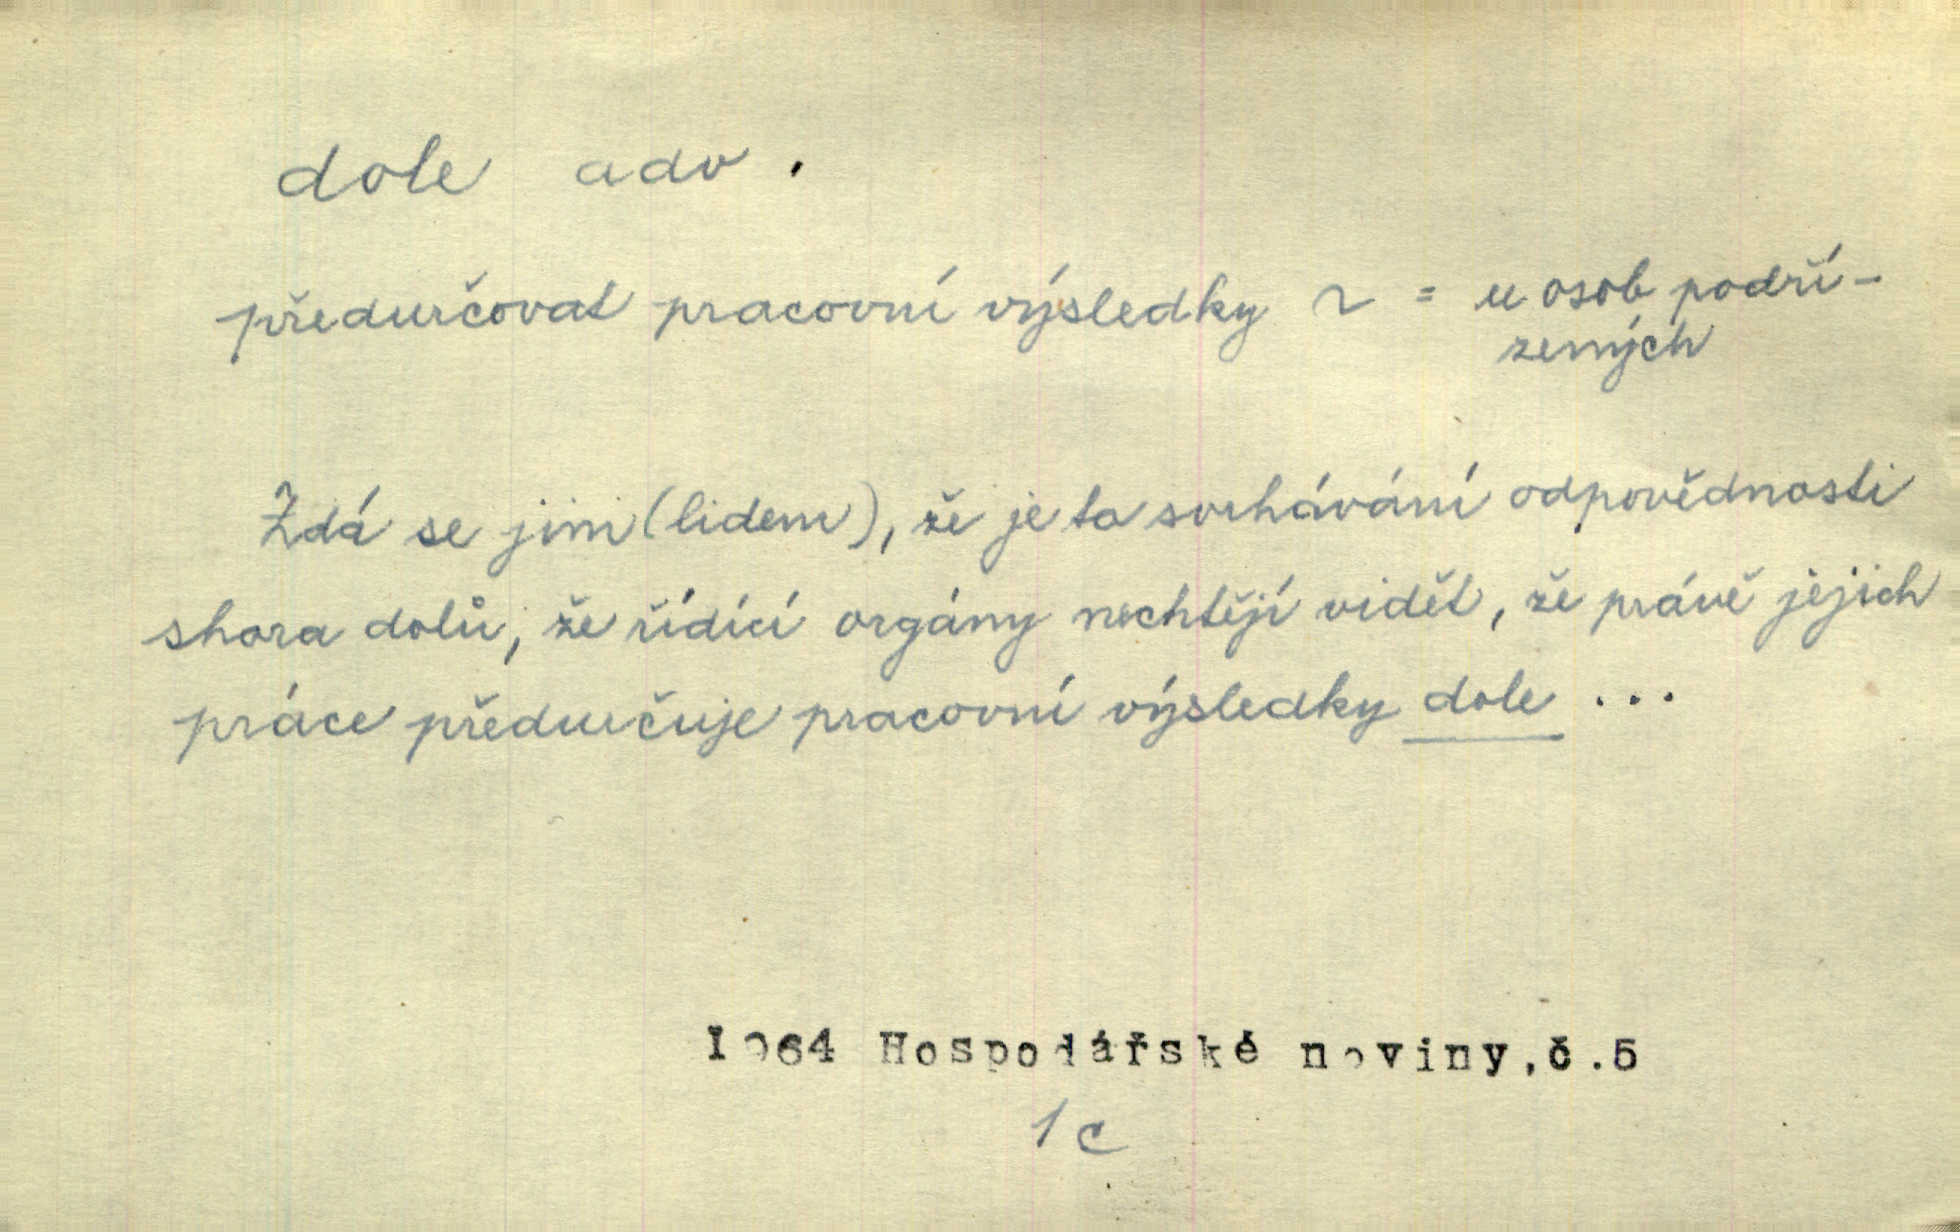 dole adv.
předurčovat pracovní výsledky ~ = u osob podří-
zených
Zdá se jim (lidem), že je to svrhávání odpovědnosti
shora dolů, že řídící orgány nechtějí vidět, že právě jejich
práce předurčuje pracovní výsledky dole ...
1964 Hospodářské noviny,č.5
1c